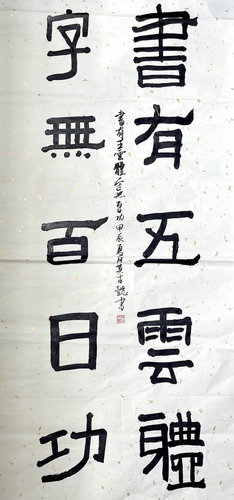 書有五雲體
字無百日功
書有五雲體字無百日功甲辰夏月書